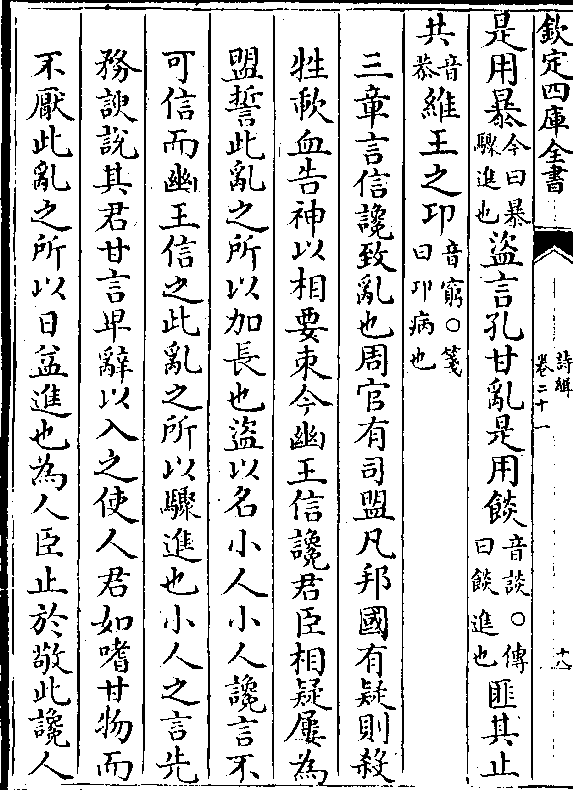 欽定四庫全書
詩緝
卷二十一
十八
是用暴今曰暴驟進也盜言孔甘亂是用餤音談○傳曰餤進也匪其止
共音恭維王之卭音窮○箋曰卭病也
三章言信讒致亂也周官有司盟凡邦國有疑則殺
牲歃血告神以相要束今幽王信讒君臣相疑屢為
盟誓此亂之所以加長也盜以名小人小人讒言不
可信而幽王信之此亂之所以驟進也小人之言先
務諛說其君甘言卑辭以入之使人君如嗜甘物而
不厭此亂之所以日益進也為人臣止於敬此讒人